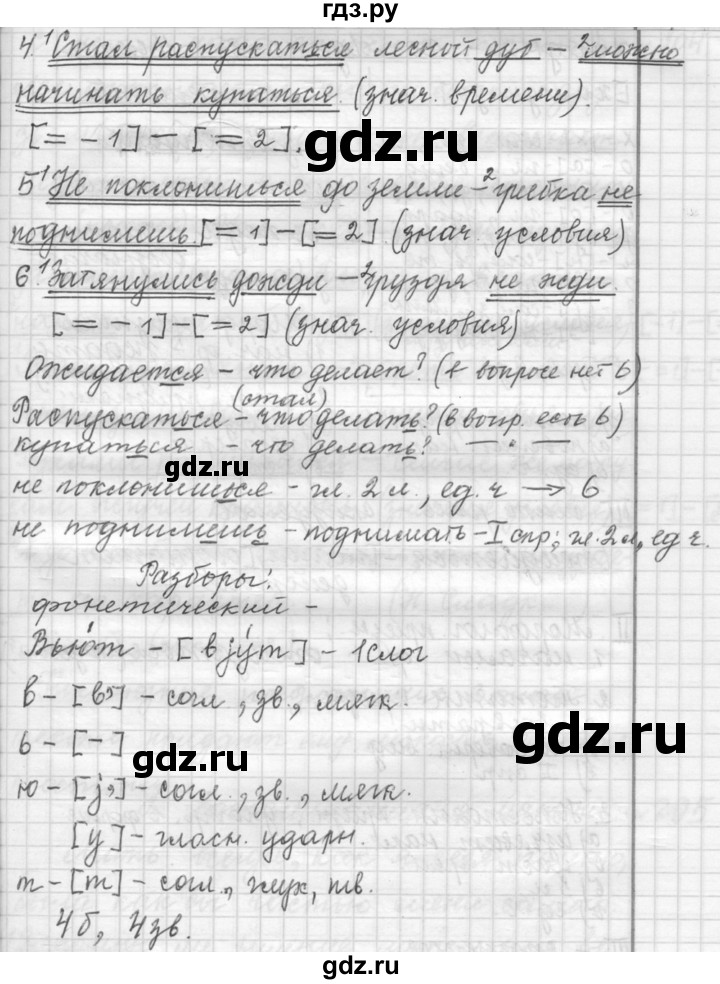 гдз.ру
4. ¹Стал распускаться лесной дуб – ²можно
начинать купаться. (знач. времени).
[= – 1] – [ = 2].
5. ¹Не поклонишься до земли – ²грибка не
поднимешь. [= 1] – [= 2]. (знач. условия)
6. ¹Затянулись дожди – ²груздя не жди.
[= – 1] – [= 2] (знач. условия)
Ожидается – что делает? (в вопросе нет ь)
(стал)
Распускаться – что делать? (в вопр. есть ь)
купаться – что делать? — . —
gdz.ru
не поклонишься – гл. 2 л., ед. ч → ь
не поднимешь – поднимать – I спр; гл. 2 л, ед ч.
gdz.ru
Разборы:
фонетический –
Вьют – [в j у́ т] – 1 слог
в – [в,] – согл., зв., мягк.
ь – [–]
gdz.ru
gdz.ru
ю – [j,] – согл., зв., мягк.
[у] – гласн. ударн.
т – [т] – согл., глух, тв.
4 б, 4 зв.
gdz.ru
gdz.ru